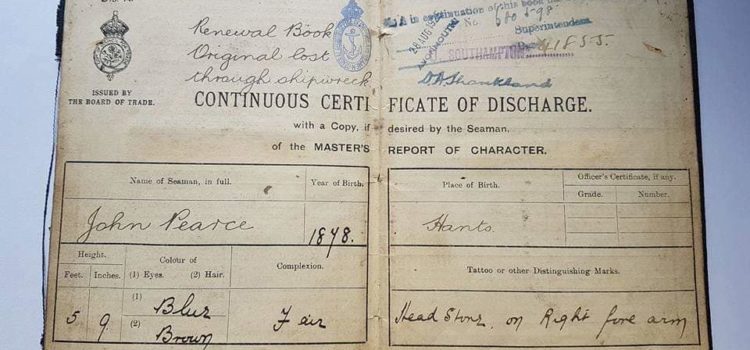 Renewal Book
Original lost
through shipwreck
in continuation of this book
No. 680598
Superintendent
28 AUG
SOUTHAMPTON
ISSUED BY
THE BOARD OF TRADE.
CONTINUOUS CERTIFICATE OF DISCHARGE.
with a Copy, if desired by the Seaman,
of the MASTER'S REPORT OF CHARACTER.
Name of Seaman, in full. Year of Birth. Place of Birth. Officer's Certificate, if any.
Grade. Number.
John Pearce 1878. Hants
Height. Colour of Complexion. Tattoo or other Distinguishing Marks.
Feet. Inches. (1) Eyes. (2) Hair.
5 9 (1) Blue Fair Head Stone on Right fore arm
(2) Brown